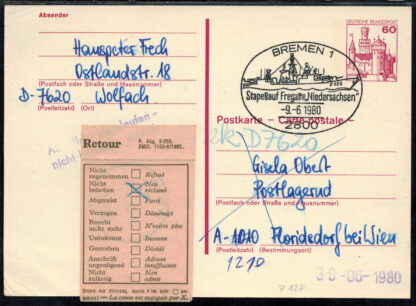 Absender
Hanspeter Frech
Ostlandstr. 18
(Postfach oder Straße und Hausnummer)
D-7620 Wolfach
(Postleitzahl) (Ort)
DEUTSCHE BUNDESPOST
60
BREMEN 1
Stapellauf Fregatte „Niedersachsen"
-9.-6.1980
2800
Postkarte – Carte postale
D7620
Gisela Obert
Postlagernd
(Postfach oder Straße und Hausnummer)
A-1010 Floridsdorf bei Wien
(Postleitzahl) (Bestimmungsort)
1210
30-06-1980
P 127
Retour
Nicht angenommen Refusé
Nicht behoben Non réclamé
Abgereist Parti
Verzogen Déménagé
Besteht nicht mehr N'existe plus
Unbekannt Inconnu
Anschrift ungenügend Adresse insuffisante
Nicht zulässig Non admis
— La cause est marquée par X.